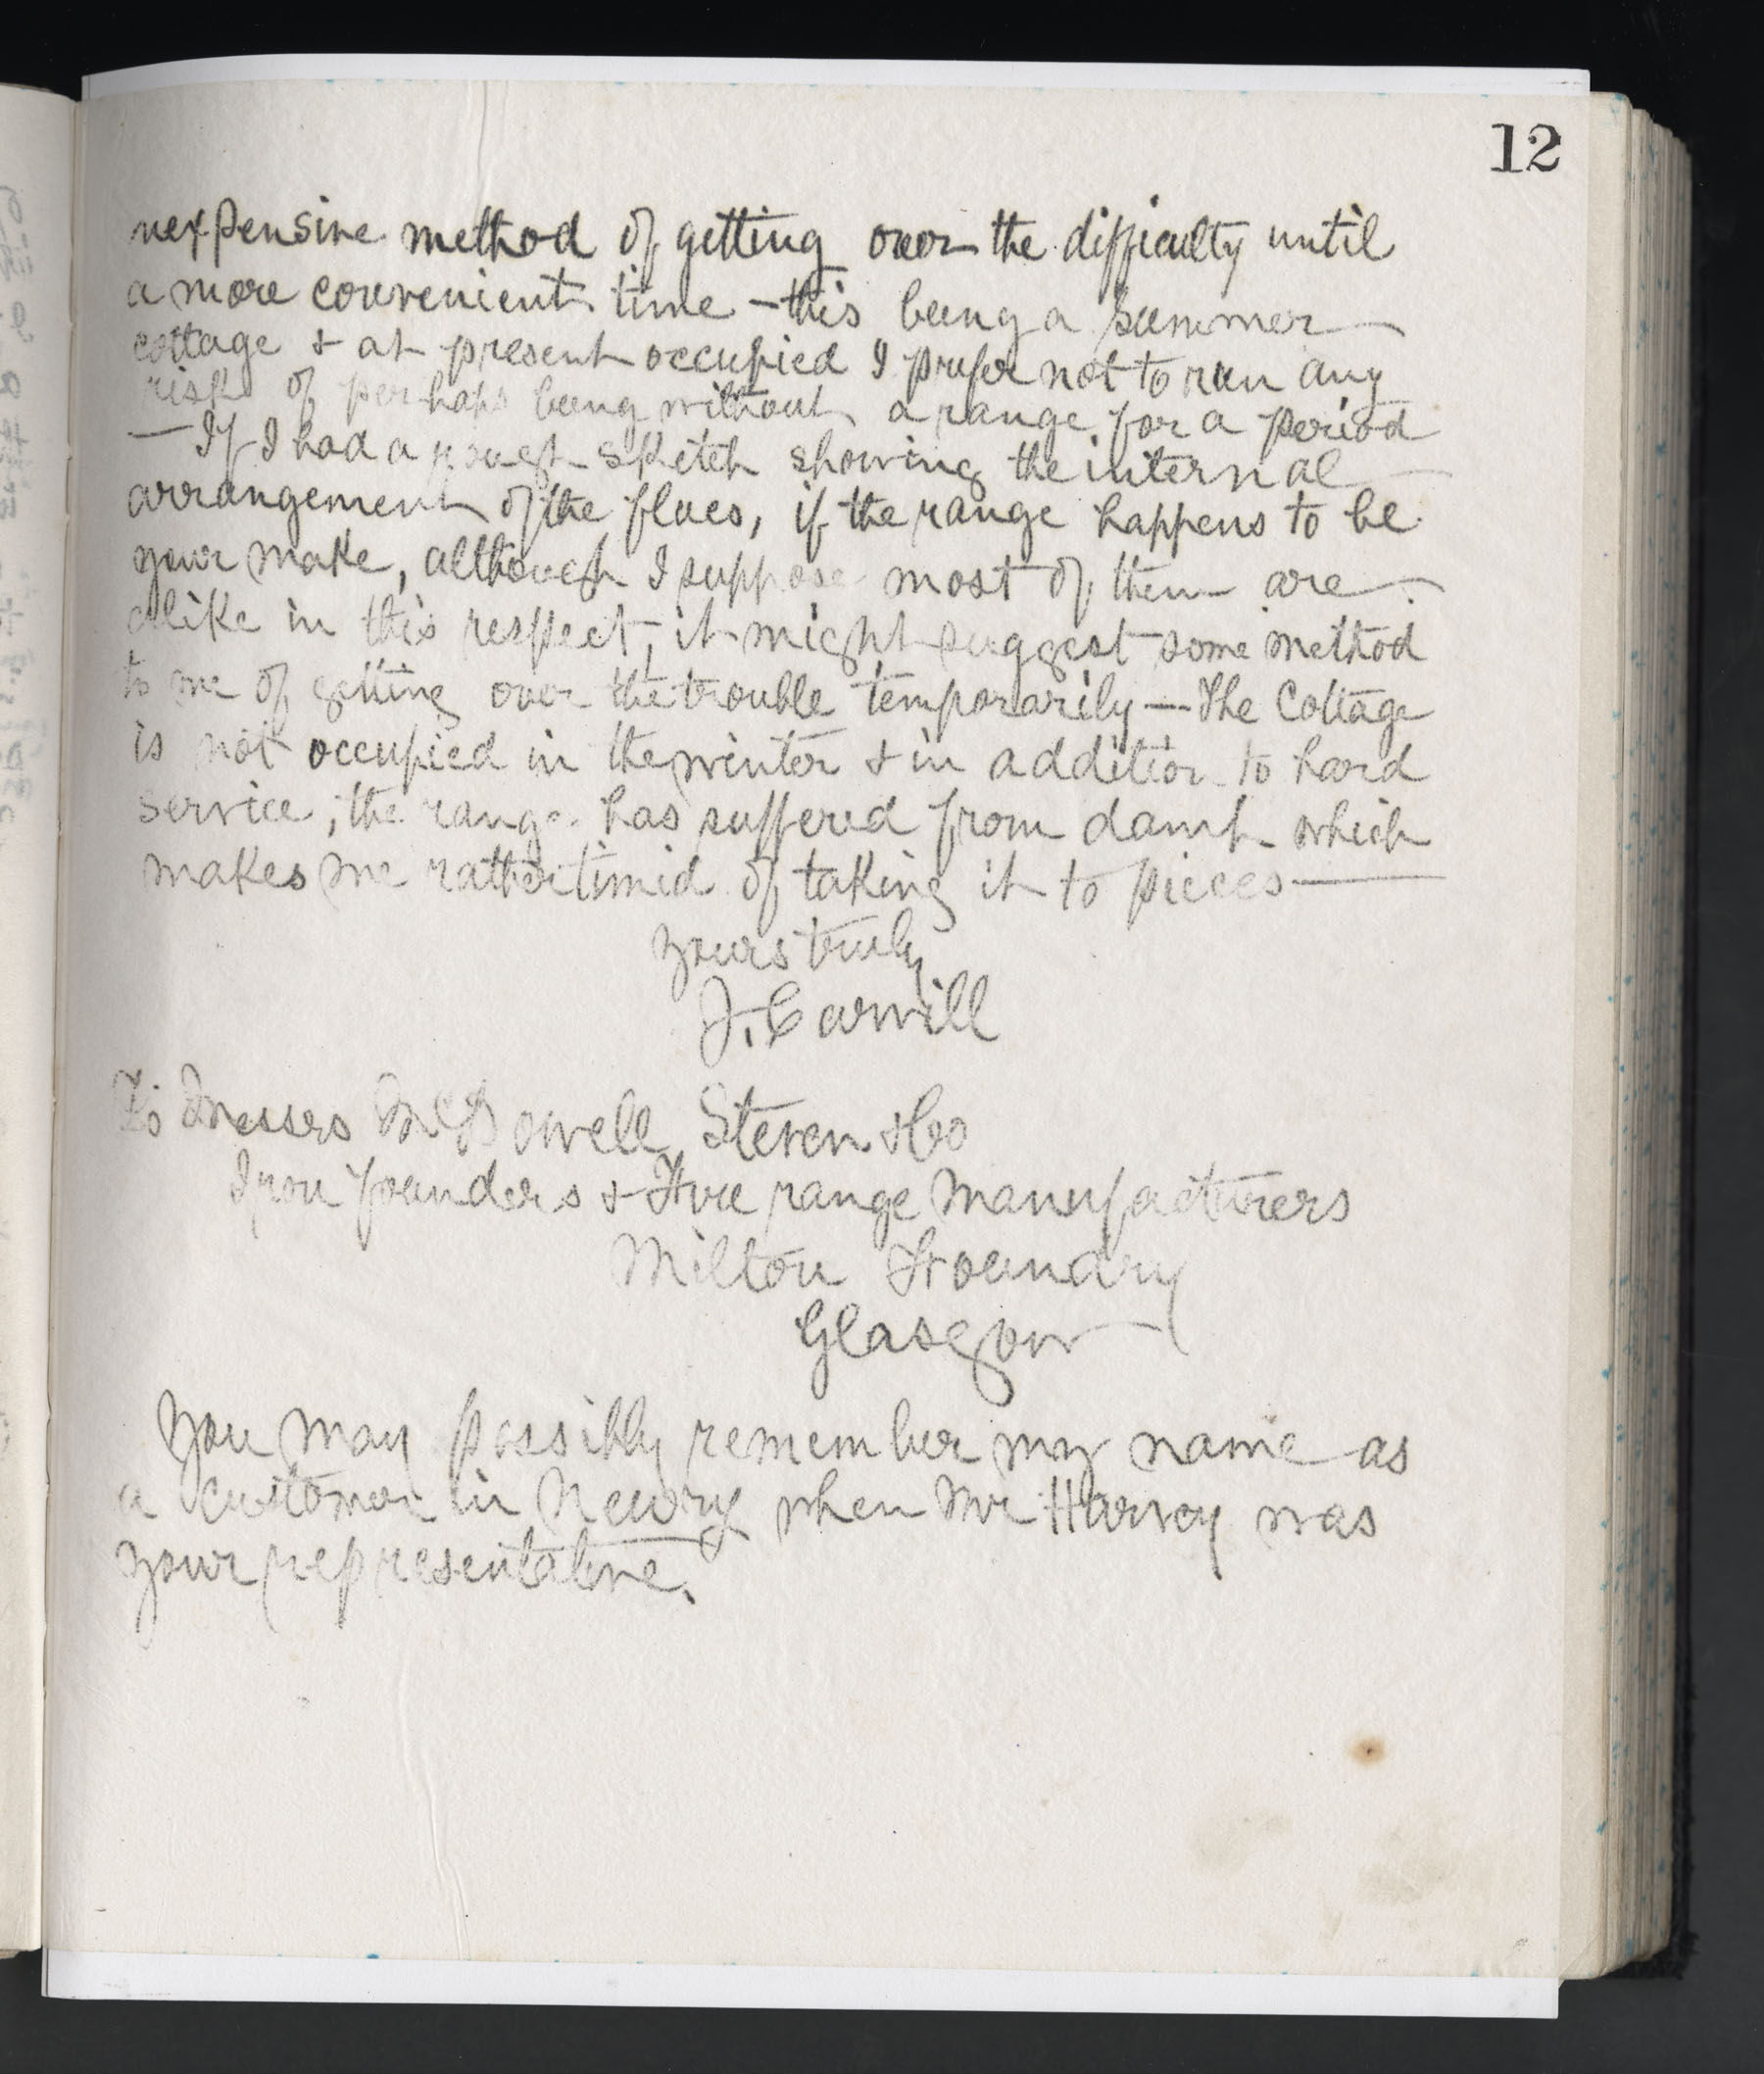 12
nexpensive method of getting over the difficulty until
a more convenient time – this being a summer
cottage & at present occupied I prefer not to run any
risk of perhaps being without a range for a period
— If I had a rough sketch showing the internal
arrangement of the flues, if the range happens to be
your make, although I suppose most of them are
alike in this respect, it might suggest some method
to me of getting over the trouble temporarily — The Cottage
is not occupied in the winter & in addition to hard
service, the range has suffered from damp which
makes me rather timid of taking it to pieces —
Yours truly
J. Carvill
To Messrs McDowell Steven & Co
Iron founders & Fire range Manufacturers
Milton Foundry
Glasgow
You may possibly remember my name as
a customer in Newry when Mr Harvey was
your representative.